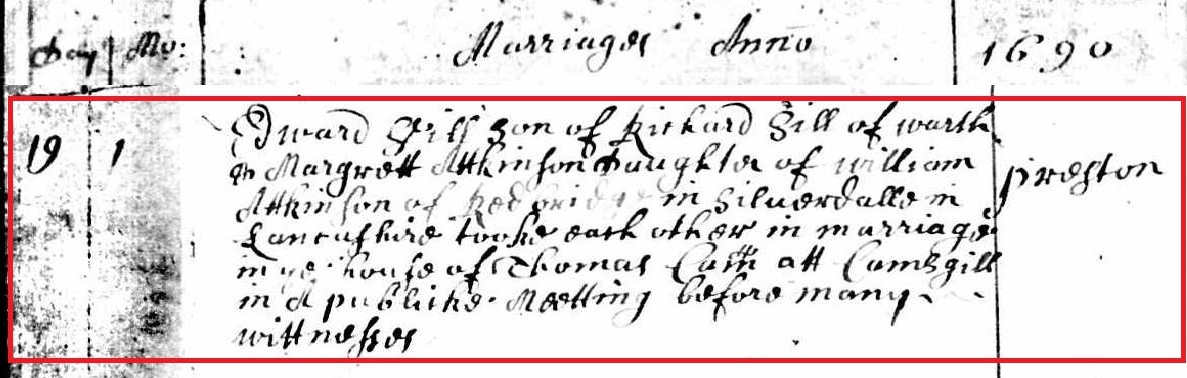 Day Mo: Marriages Anno 1690
19 1 Edward Sill Son of Richard Sill of warth
& Margrett Attkinson Daughter of william
Attkinson of Redbridge in Silverdalle in preston
Lancashire tooke each other in marriage
in ye house of Thomas Cam att Camsgill
in A publicke Meetting before many
wittnesses